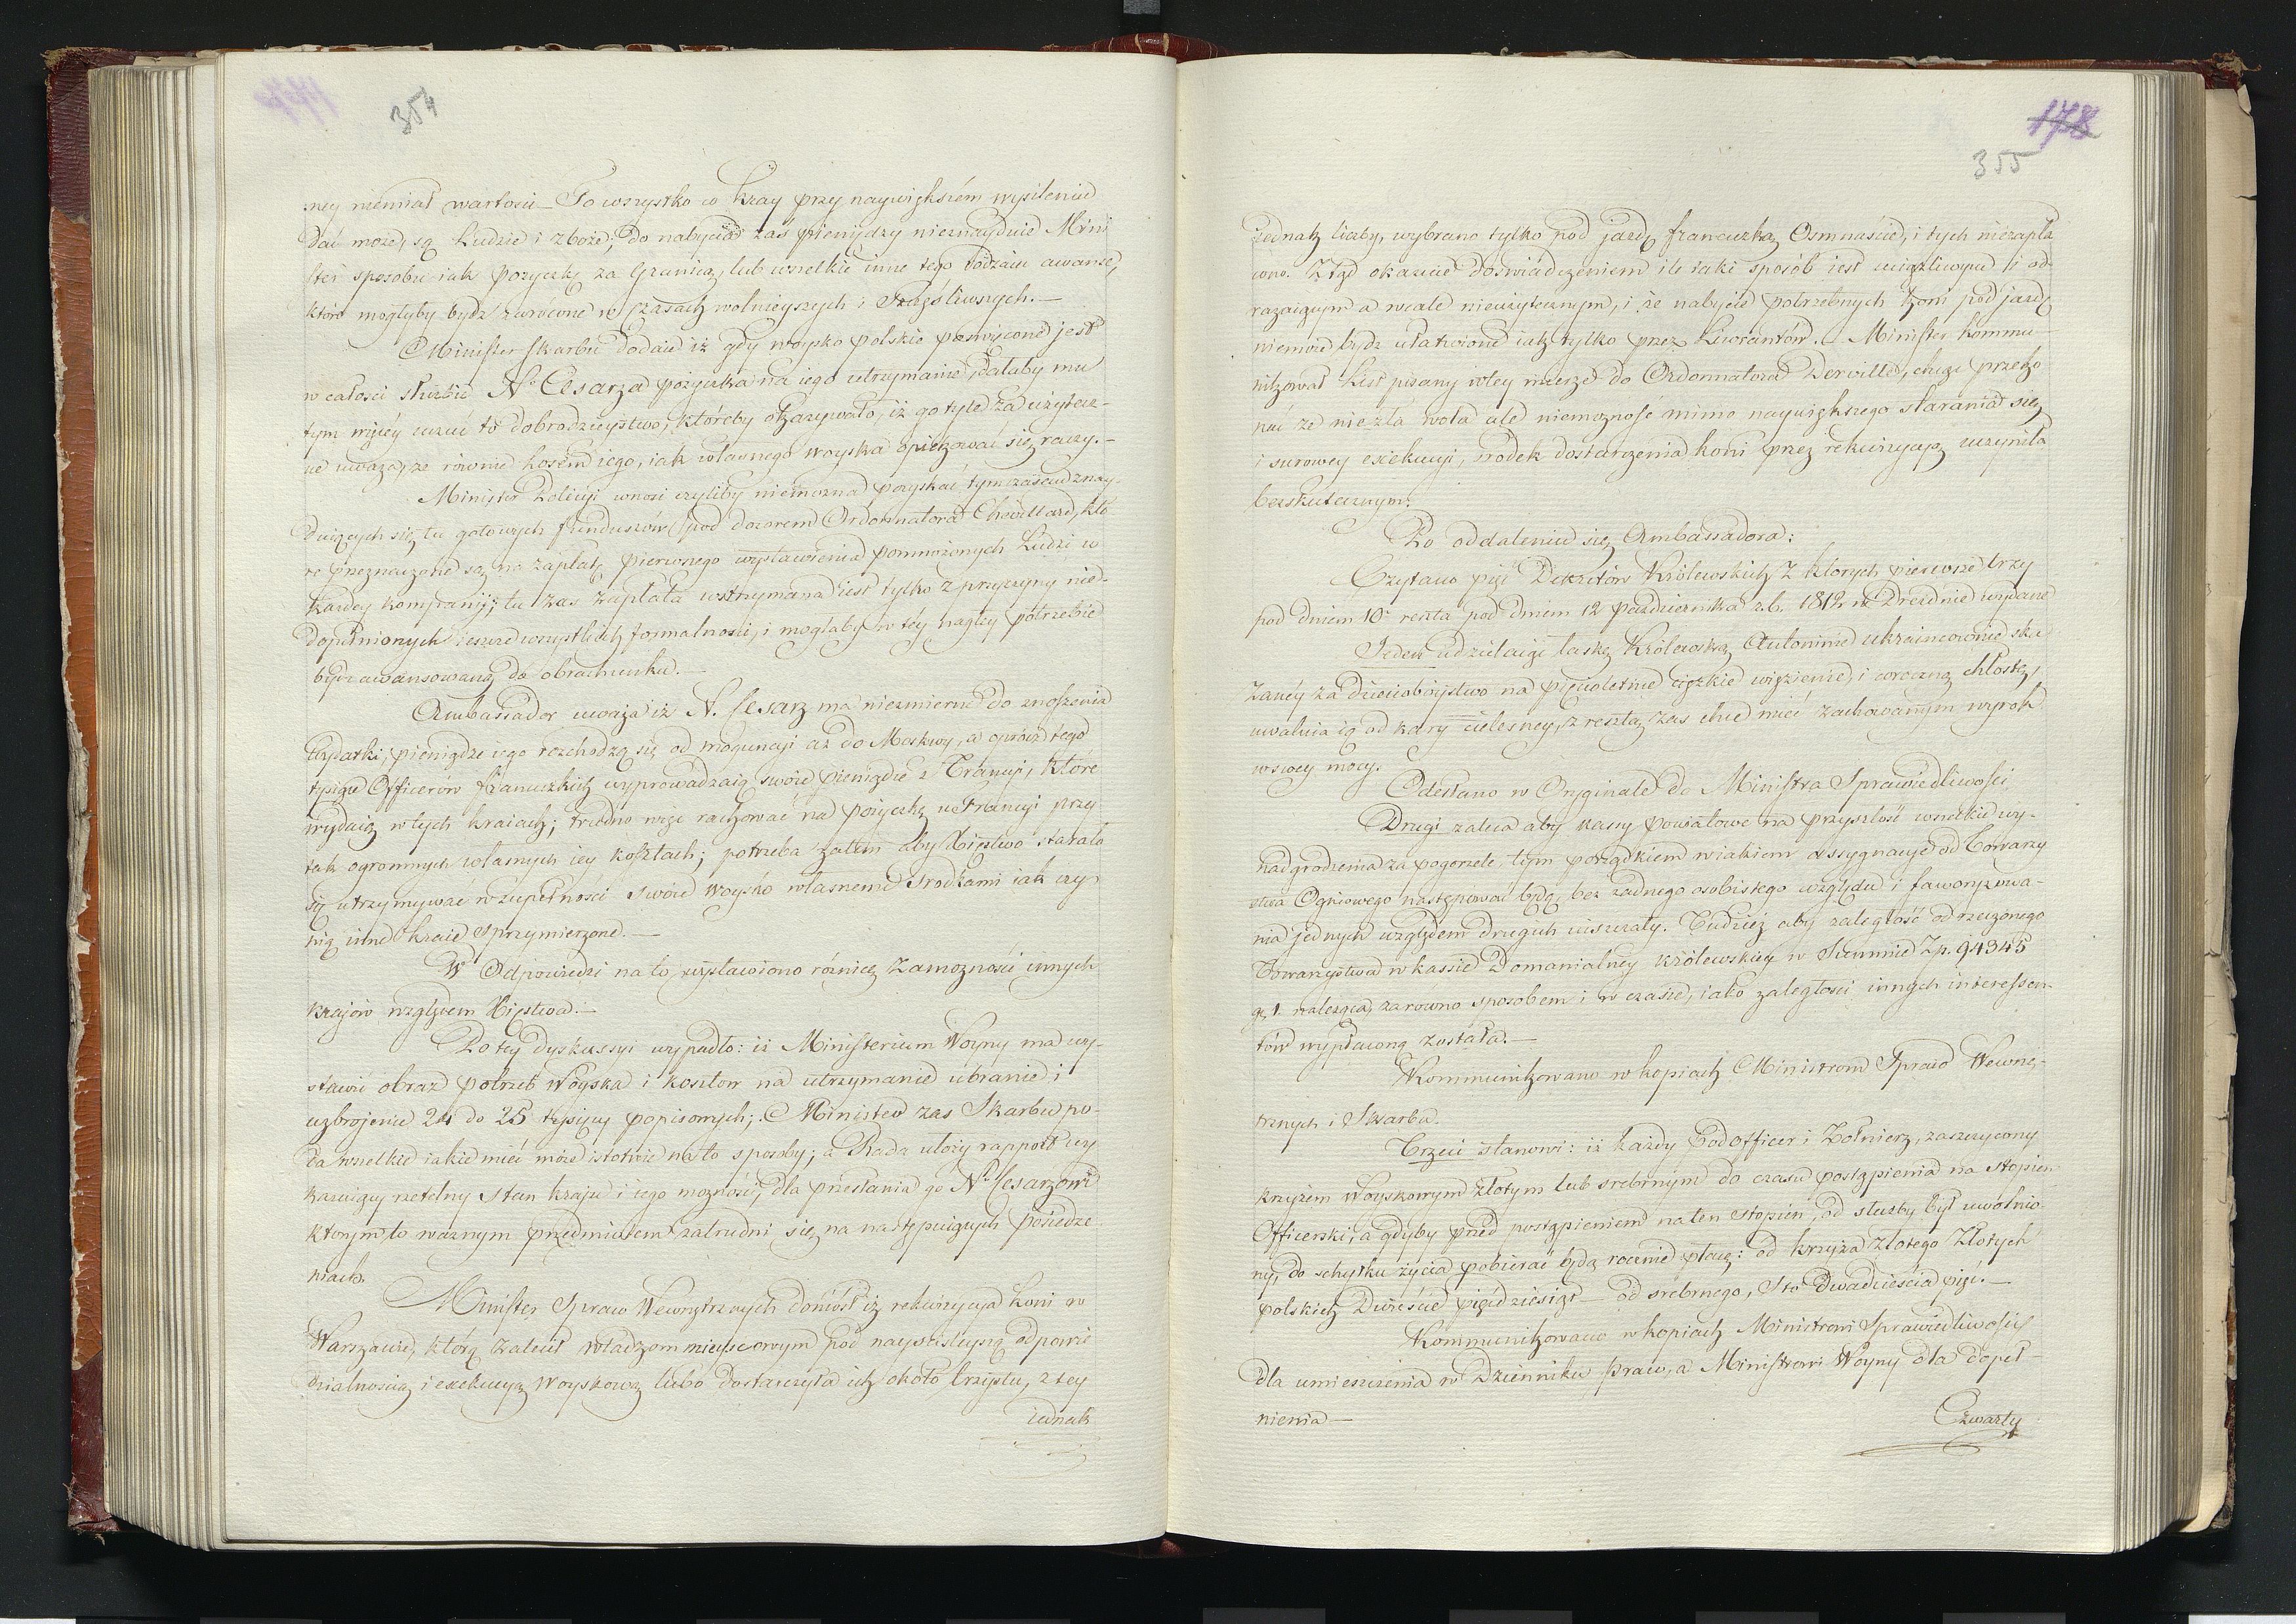 354
ney niemiał wartości – To wszystko co kray przy naywiększém wysileniu
dać może, są Ludzie i zboże; do nabycia zaś pieniędzy nieznayduie Mini
ster sposobu iak pożyczkę za Granicą, lub wszelkie inne tego rodzaiu awanse,
które mogłyby bydź zwrócone w czasach wolnieyszych i Szczęśliwszych. –
Minister Skarbu dodaie iż gdy woysko polskie poświęcone jest
w całości służbie N° Cesarza pożyczka na iego utrzymanie, dałaby mu
tym więcéy uczuć to dobrodzieystwo, któreby okazywało, iż go tyle za użytecz-
ne uważa, że równie losem iego, iak własnego woyska opiekować się raczy. –
Minister Policyi wnosi czyliby niemożna pozyskać tymczasem znay-
duiących się tu gotowych funduszów pod dozorem Ordonnatora Chevillard, któ
re przeznaczone są na zapłatę pierwszego wystawienia pomnożonych Ludzi w
każdey kompanij; tu zaś zapłata wstrzymana iest tylko z przyczyny nied-
dopełnionych ieszcze wszystkich formalności, i mogłaby w téy nagłéy potrzebie
bydź awansowaną do obrachunku. –
Ambassador uważa iż N. Cesarz ma niezmierne do znoszenia
wydatki, pieniądze iego rozchodzą się od Moguncyi aż do Moskwy, a oprócz tego
tysiące Officerów francuzkich wyprowadzaią swoie pieniądze z Francyi, które
wydaią w tych kraiach; trudno więc rachować na pożyczkę w Francyi przy
tak ogromnych własnych iey kosztach; potrzeba zatem aby Xięstwo starało
się utrzymywać w zupełności swoie woysko własnemi środkami iak czy-
nią inne kraie sprzymierzone. –
W Odpowiedzi na to wystawiono różnicę zamożności innych
krajów względem Xięstwa. –
Po tey dyskussyi wypadło: iż Ministerium Woyny ma wy-
stawić obraz potrzeb Woyska i kosztów na utrzymanie ubranie i
uzbrojenie 24 do 25 tysięcy popisowych; Minister zaś Skarbu po-
da wszelkie iakie mieć może istotnie na to sposoby; a Rada ułoży rapport wy
kazuiący rzetelny stan kraju i iego możność, dla przesłania go N° Cesarzowi
którym to ważnym przedmiotem zatrudni się na następuiących posiedze
niach.
Minister Spraw Wewnętrznych doniósł iż rekwizycya koni w
Warszawie, którą zalecił władzom mieyscowym pod nayściśleyszą odpowie
dzialnością i exekucyą Woyskową lubo dostarczyła ich około trzystu, z tey
iednak
178
355
jednak liczby, wybrano tylko pod jazdę francuzką Osmnaście, i tych niezapła
cono. Ztąd okazuie doświadczeniem ile taki sposób iest uciążliwym i od-
rażaiącym a wcale nieużytecznym, i że nabycie potrzebnych koni pod jazdę
niemoże bydź ułatwione iak tylko przez Liwerantów. Minister kommu-
nikował List pisany w tey mierze do Ordonnatora Derville, chcąc przeko
nać że nie zła wola ale niemożność mimo naywiększego starania się
i surowey exekucyi, środek dostarczenia koni przez rekwizycyę uczyniła
bezskutecznym.
Po oddaleniu się Ambassadora:
Czytano pięć Dekretów Królewskich z których pierwsze trzy
pod dniem 10. reszta pod dniem 12 Października r.b. 1812 w Dreźnie wydane
Jeden udzielaiąc łaskę Królewską Antoninie Ukraincownie ska
zanéy za dzieciobóystwo na pięcioletnie ciężkie więzienie, i coroczną chłostę,
uwalnia ią od kary cielesney, z resztą zaś chce mieć zachowanym wyrok
w swey mocy.
Odesłano w Oryginale do Ministra Sprawiedliwości
Drugi zaleca aby kassy powiatowe na przyszłość wszelkie wy-
nadgrodzenia za pogorzele, tym porządkiem w iakiem assygnacye od Towarzy
stwa Ogniowego następować będą, bez żadnego osobistego względu i faworyzowa-
nia jednych względem drugich uiszczały. Tudzież aby zaległość od rzeczonego
Towarzystwa w kassie Domanialnéy królewskiey w Summie Zp. 94345
gr. 1. należąca, zarówno sposobem i w czasie, iako zaległości innych interessen
tów wypłaconą została. –
Kommunikowano w kopiach Ministrom Spraw Wewnę-
trznych i Skarbu.
Trzeci stanowi: iż każdy Podofficer i Żołnierz, zaszczycony
krzyżem Woyskowym złotym lub srebrnym do czasu postąpienia na stopień
Officerski; a gdyby przed postąpieniem na ten stopień, od służby był uwolnio-
ny, do schyłku życia pobierać będą rocznie płacę: od krzyża złotego Złotych
polskich Dwieście pięćdziesiąt – od srebrnego, Sto Dwadzieścia pięć. –
Kommunikowano w kopiach Ministrowi Sprawiedliwości
dla umieszczenia w Dzienniku praw, a Ministrowi Woyny dla dopeł-
nienia –
Czwarty